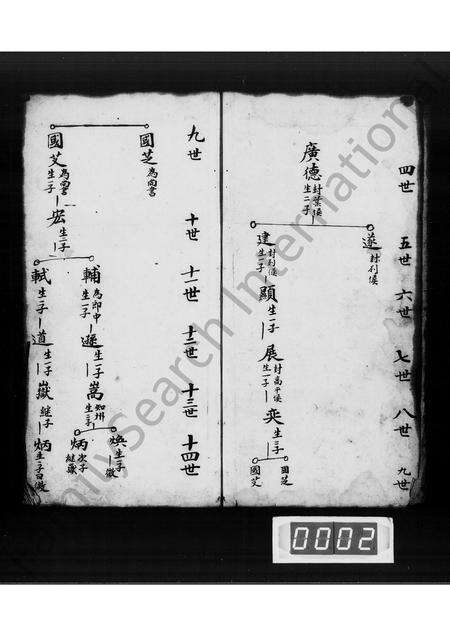 四世
五世
六世
七世
八世
九世
廣德
封葉侯
生二子
遂
封列侯
建
封列侯
生一子
顯
生一子
展
封高平侯
生一子
奕
生二子
國芝
國艾
九世
十世
十一世
十二世
十三世
十四世
國芝
為尚書
國艾
為尚書
生一子
宏
生二子
輔
為郎中
生一子
遜
生一子
嵩
知州
生二子
煥
生一子
徽
炳
次子
繼嶽
軾
生一子
道
生一子
嶽
繼子
炳
FamilySearch International
0002